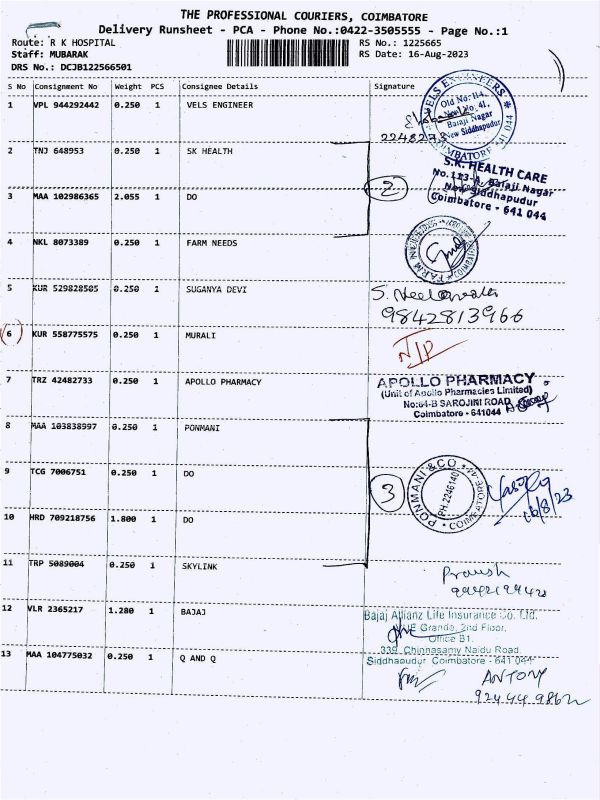 THE PROFESSIONAL COURIERS, COIMBATORE
Delivery Runsheet - PCA - Phone No.:0422-3505555 - Page No.:1
Route: R K HOSPITAL RS No.: 1225665
Staff: MUBARAK RS Date: 16-Aug-2023
DRS No.: DCJB122566501
S No Consignment No Weight PCS Consignee Details Signature
1 VPL 944292442 0.250 1 VELS ENGINEER
VELS ENGINEERS Old No: 114, New No. 41, Balaji Nagar New Siddhapudur COIMBATORE 641 044
2 TNJ 648953 0.250 1 SK HEALTH
S.K. HEALTH CARE
No.113-A, Balaji Nagar
New Siddhapudur
Coimbatore - 641 044
3 MAA 102986365 2.055 1 DO 2
4 NKL 8073389 0.250 1 FARM NEEDS
5 KUR 529828505 0.250 1 SUGANYA DEVI
9842813966
6 KUR 558775575 0.250 1 MURALI
7 TRZ 42482733 0.250 1 APOLLO PHARMACY
APOLLO PHARMACY
(Unit of Apollo Pharmacies Limited)
No:64-B SAROJINI ROAD
Coimbatore - 641044
8 MAA 103838997 0.250 1 PONMANI
9 TCG 7006751 0.250 1 DO 3
PONMANI & CO. PH:2246140 COIMBATORE-44
16/8/23
10 HRD 709218756 1.800 1 DO
11 TRP 5089004 0.250 1 SKYLINK
12 VLR 2365217 1.280 1 BAJAJ
Bajaj Allianz Life Insurance Co. Ltd.
Grande, 2nd Floor,
Office B1.
339, Chinnasamy Naidu Road
Siddhapudur Coimbatore - 641 044
13 MAA 104775032 0.250 1 Q AND Q
ANTONY